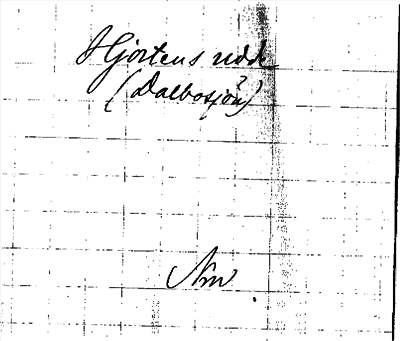 Hjortens udde
(Dalbosjön)